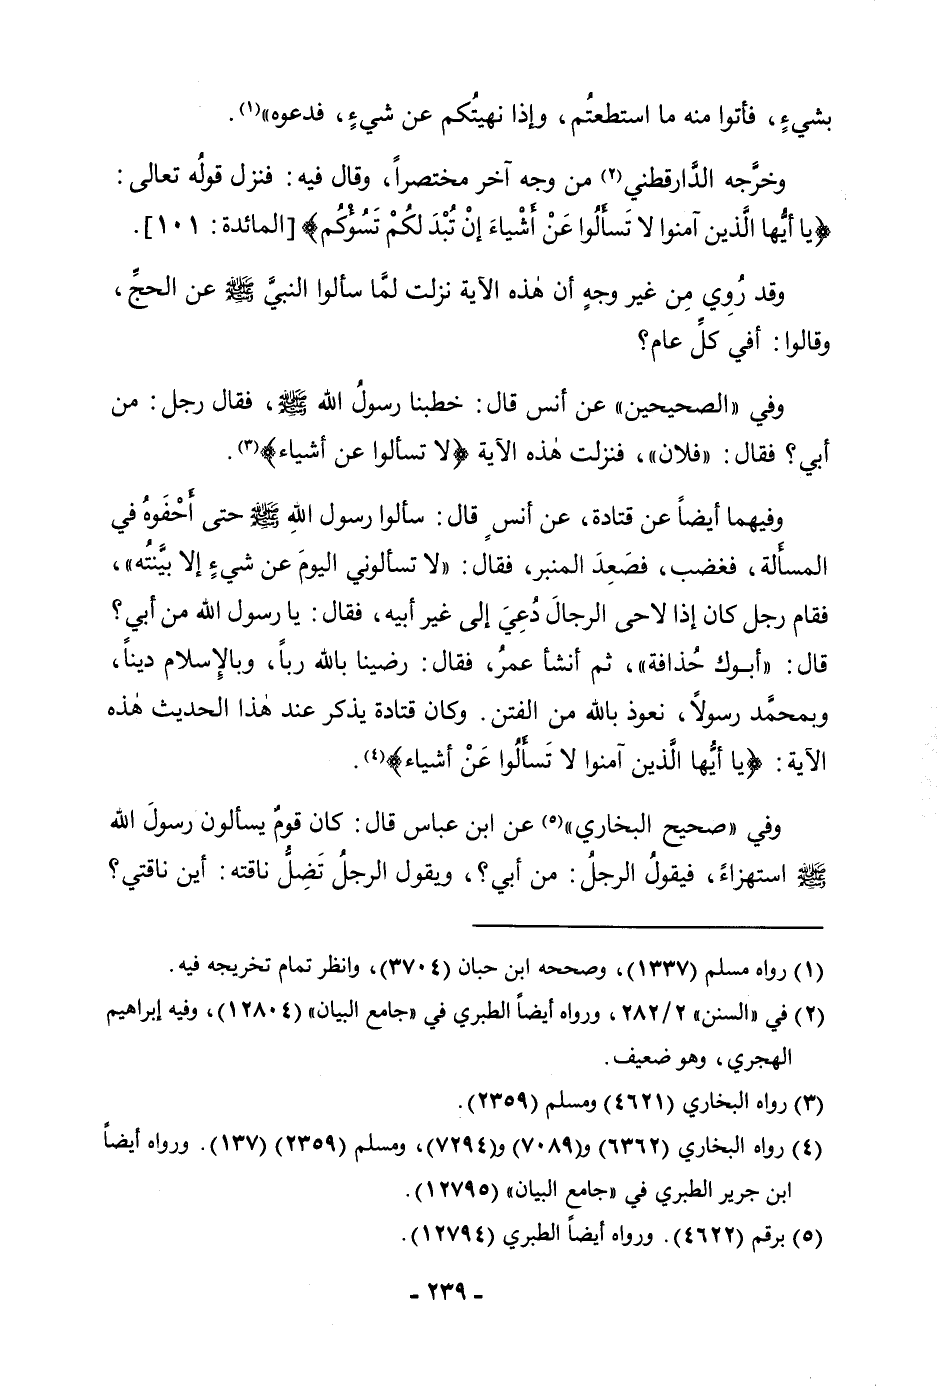 بشيءٍ، فأتوا منه ما استطعتُم، وإذا نهيتُكم عن شيءٍ، فدعوه»(١).
وخرَّجه الدَّارقطني(٢) من وجه آخر مختصراً، وقال فيه: فنزل قولُه تعالى:
﴿يا أيُّها الَّذين آمنوا لا تَسألُوا عَنْ أَشْياءَ إنْ تُبْدَ لكُمْ تَسُؤْكُم﴾ [المائدة: ١٠١].
وقد رُوِي مِن غير وجهٍ أن هٰذه الآية نزلت لمَّا سألوا النبيَّ ﷺ عن الحجِّ،
وقالوا: أفي كلِّ عام؟
وفي «الصحيحين» عن أنس قال: خطبنا رسولُ الله ﷺ، فقال رجل: من
أبي؟ فقال: «فلان»، فنزلت هٰذه الآية ﴿لا تسألوا عن أشياء﴾(٣).
وفيهما أيضاً عن قتادة، عن أنسٍ قال: سألوا رسول اللهِ ﷺ حتى أَحْفَوهُ في
المسألة، فغضب، فصَعِدَ المنبر، فقال: «لا تسألوني اليومَ عن شيءٍ إلا بيَّنتُه»،
فقام رجل كان إذا لاحى الرجالَ دُعِيَ إلى غير أبيه، فقال: يا رسول الله من أبي؟
قال: «أبوك حُذافة»، ثم أنشأ عمرُ، فقال: رضينا بالله رباً، وبالإسلام ديناً،
وبمحمَّد رسولاً، نعوذ بالله من الفتن. وكان قتادة يذكر عند هٰذا الحديث هٰذه
الآية: ﴿يا أيُّها الَّذين آمنوا لا تَسألُوا عَنْ أشياء﴾(٤).
وفي «صحيح البخاري»(٥) عن ابن عباس قال: كان قومٌ يسألون رسولَ الله
ﷺ استهزاءً، فيقولُ الرجلُ: من أبي؟، ويقول الرجلُ تَضِلُّ ناقته: أين ناقتي؟
(١) رواه مسلم (١٣٣٧)، وصححه ابن حبان (٣٧٠٤)، وانظر تمام تخريجه فيه.
(٢) في «السنن» ٢/ ٢٨٢، ورواه أيضاً الطبري في «جامع البيان» (١٢٨٠٤)، وفيه إبراهيم
الهجري، وهو ضعيف.
(٣) رواه البخاري (٤٦٢١) ومسلم (٢٣٥٩).
(٤) رواه البخاري (٦٣٦٢) و(٧٠٨٩) و(٧٢٩٤)، ومسلم (٢٣٥٩) (١٣٧). ورواه أيضاً
ابن جرير الطبري في «جامع البيان» (١٢٧٩٥).
(٥) برقم (٤٦٢٢). ورواه أيضاً الطبري (١٢٧٩٤).
- ٢٣٩ -